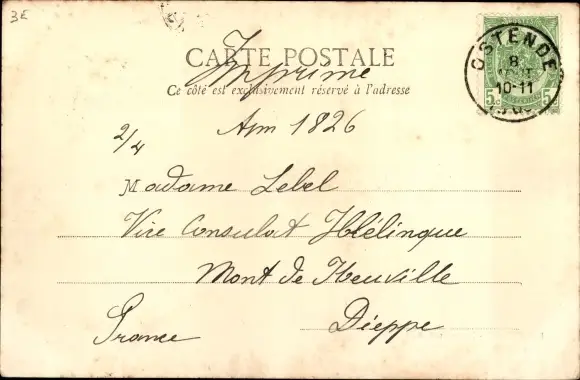 3E
CARTE POSTALE
Imprimé
Ce côté est exclusivement réservé à l'adresse
OSTENDE
8
10-11
5c
Apm 1826
2/4
Madame Lebel
Vice Consulat Hélinque
Mont de Neuville
Dieppe
France